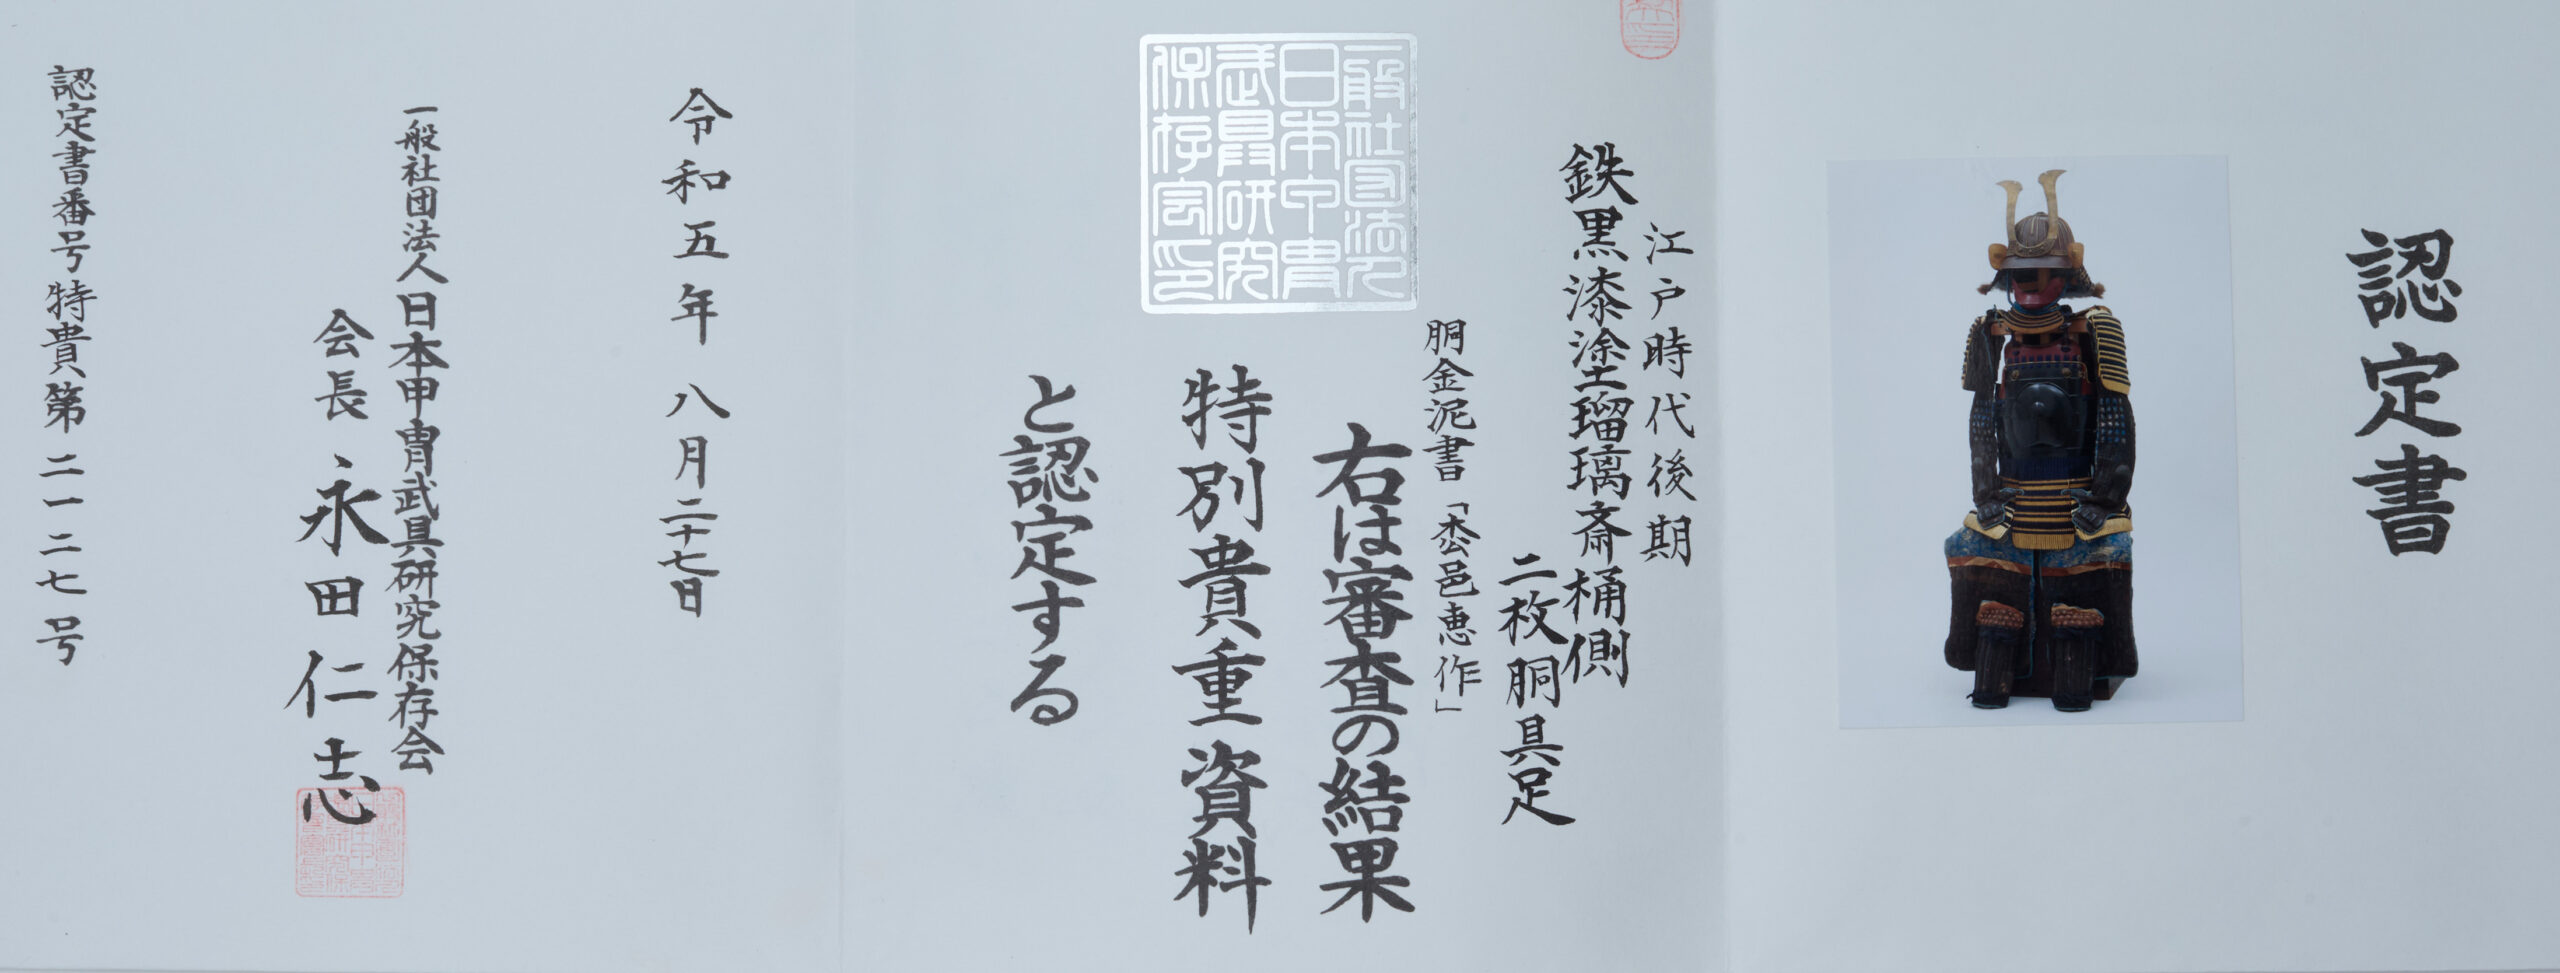 認定書
江戸時代後期
鉄黒漆塗瑠璃斎桶側
二枚胴具足
胴金泥書「枩邑恵作」
一般社団法人
日本甲冑
武具研究
保存会印
右は審査の結果
特別貴重資料
と認定する
令和五年八月二十七日
一般社団法人日本甲冑武具研究保存会
会長 永田仁志
認定書番号特貴第二一二七号